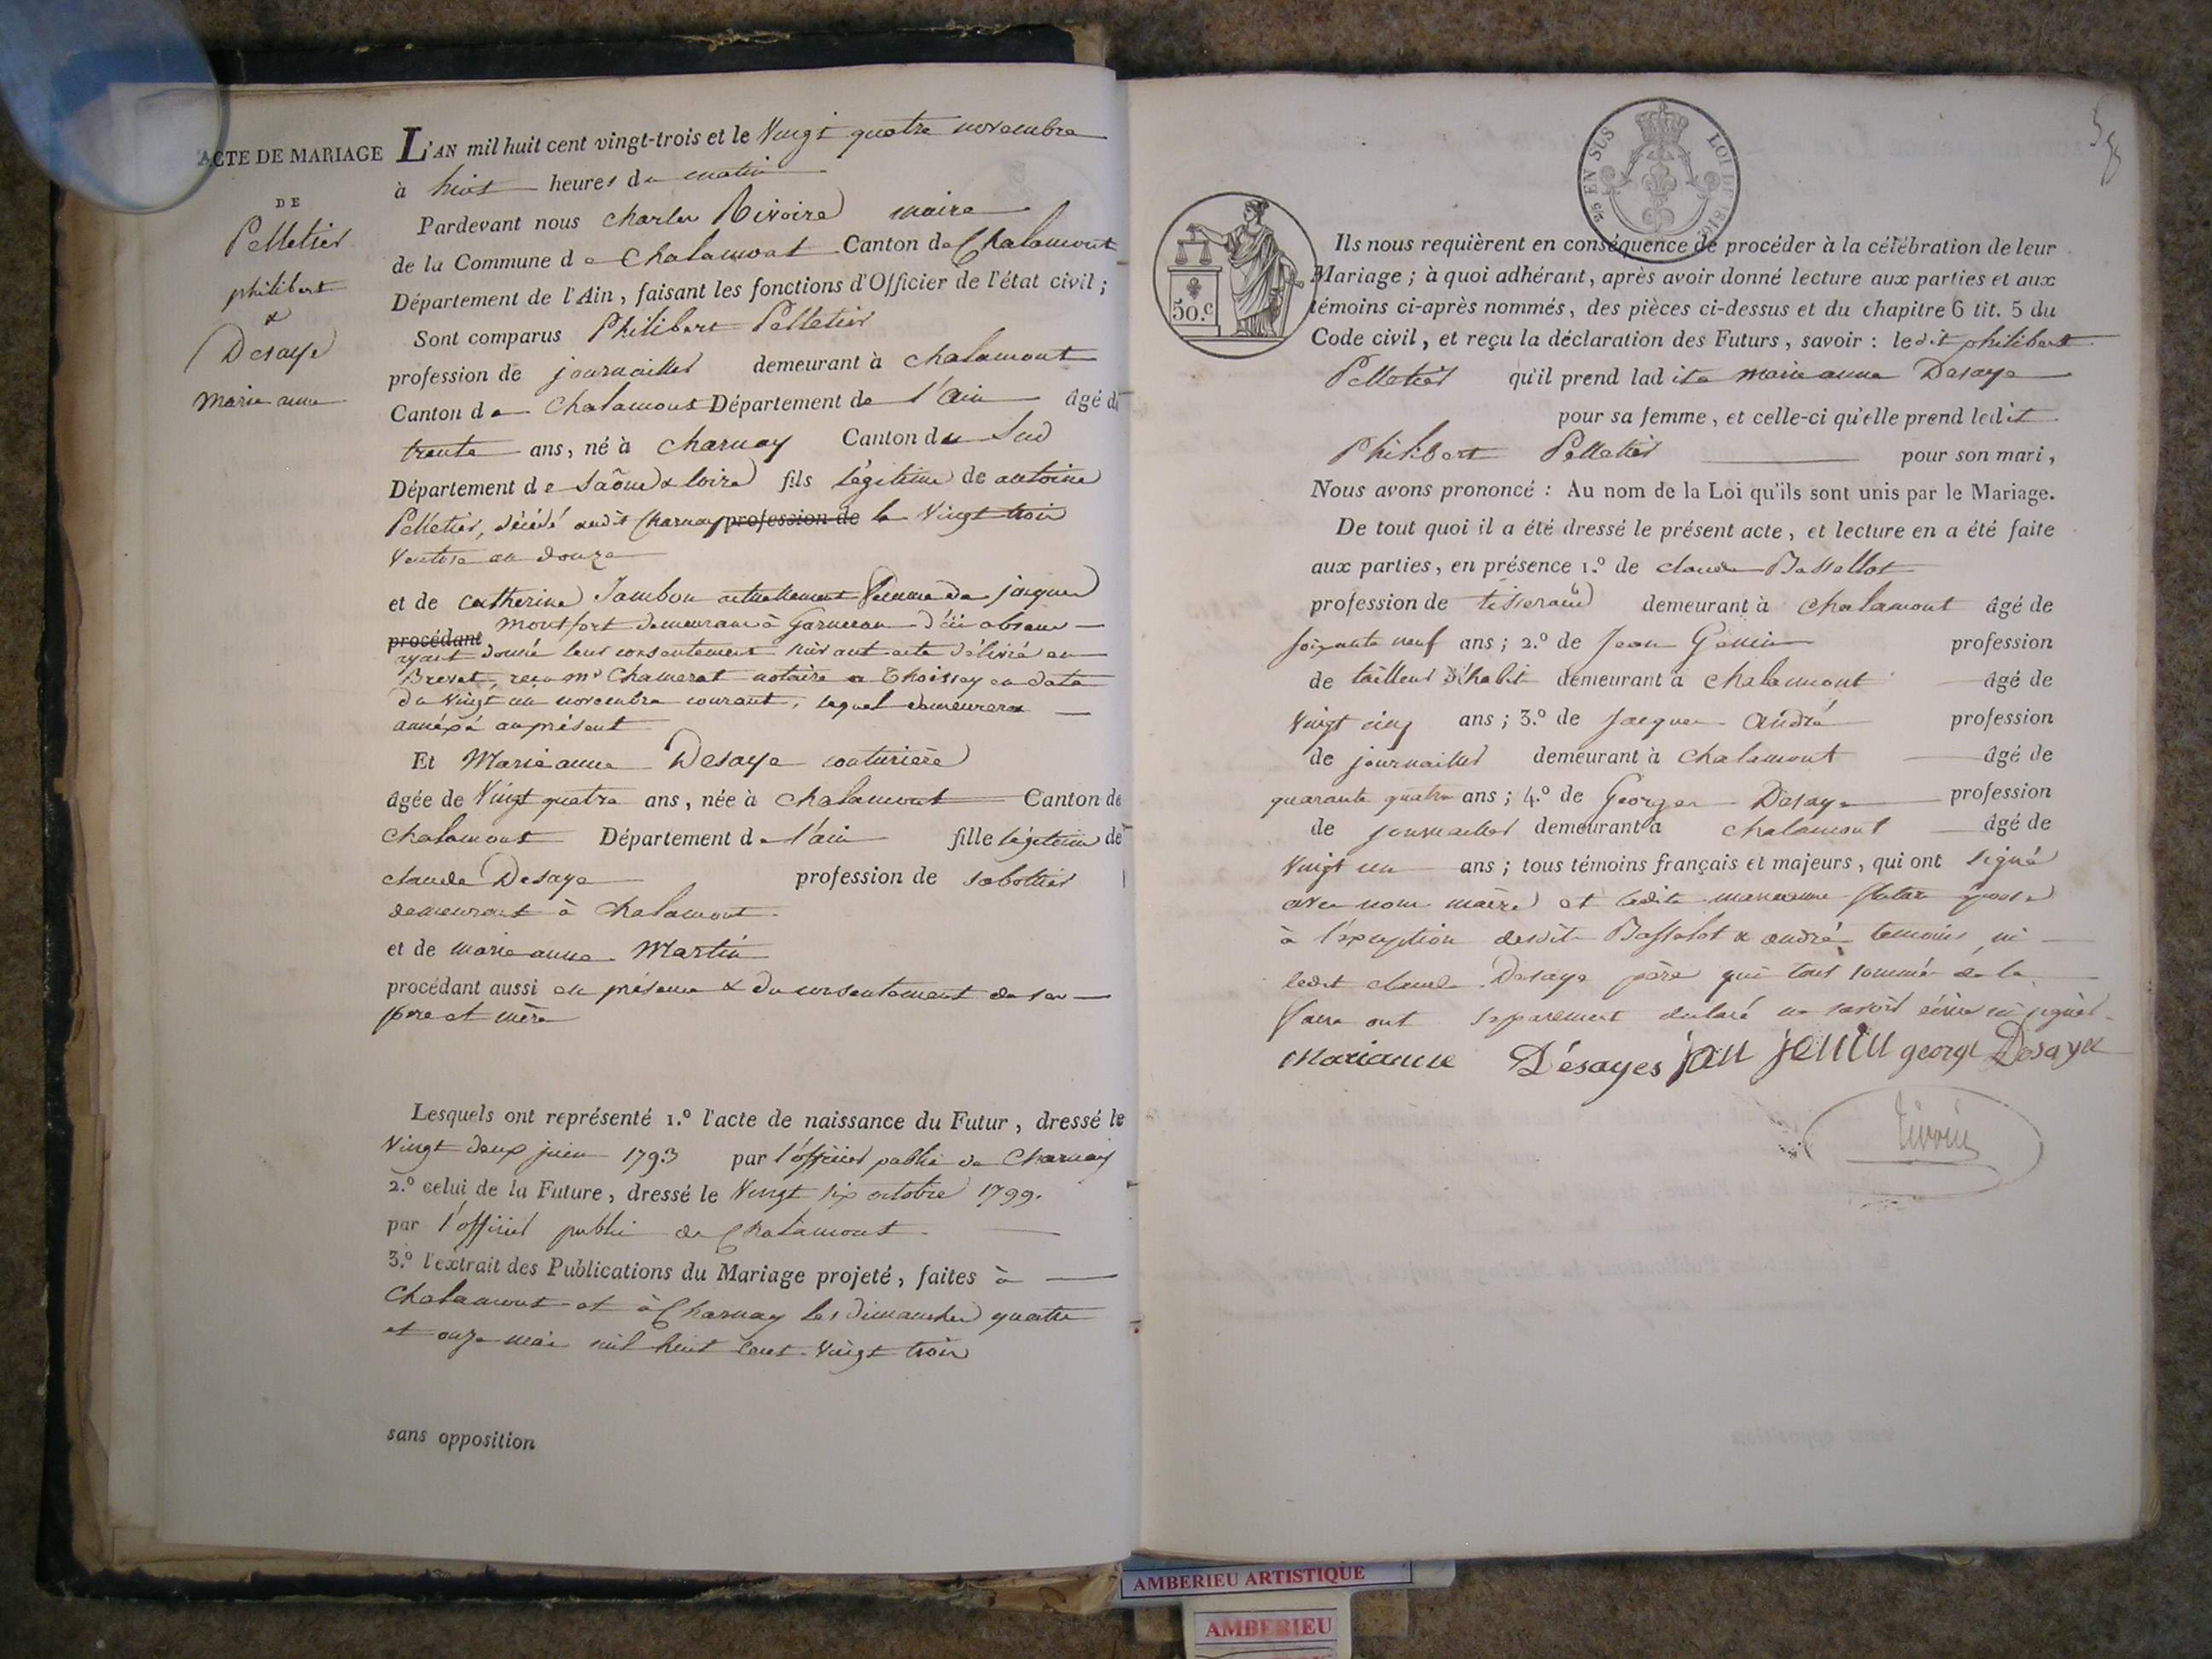 ACTE DE MARIAGE
DE
Pelletier
philibert
&
Desaye
Marie anne
L'AN mil huit cent vingt-trois et le Vingt quatre novembre
à huit heures du matin
Pardevant nous Charles Rivoire maire
de la Commune de Chalamont Canton de Chalamont
Département de l'Ain, faisant les fonctions d'Officier de l'état civil;
Sont comparus Philibert Pelletier
profession de journailler demeurant à Chalamont
Canton de Chalamont Département de l'ain âgé de
trente ans, né à Charnay Canton du Sud
Département de Saône & loire fils légitime de antoine
Pelletier, décédé audit Charnay profession de le Vingt trois
Ventose an douze
et de Catherine Jambon actuellement femme de jacques
Montfort demeurant à Garneran d'ici absens
procédant
ayant donné leur consentement suivant acte délivré en
Brevet, reçu Me Chamerat notaire a Thoissey en date
du Vingt un novembre courant, lequel demeurera
annéxé au présent
Et Marie anne Desaye couturière
âgée de Vingt quatre ans, née à Chalamont Canton de
Chalamont Département de l'ain fille légitime de
claude Desaye profession de sabottier
demeurant à Chalamont
et de marie anne Martin
procédant aussi en présence & du consentement de ses
père et mère
Lesquels ont représenté 1.º l'acte de naissance du Futur, dressé le
Vingt deux juin 1793 par l'officier public de Charnay
2.º celui de la Future, dressé le Vingt six octobre 1799.
par l'officier public de Chalamont
3.º l'extrait des Publications du Mariage projeté, faites à
Chalamont et à Charnay les dimanches quatre
et onze mai mil huit cent vingt trois
sans opposition
25 EN SUS
LOI DE 1816
50.c
Ils nous requièrent en conséquence de procéder à la célébration de leur
Mariage; à quoi adhérant, après avoir donné lecture aux parties et aux
témoins ci-après nommés, des pièces ci-dessus et du chapitre 6 tit. 5 du
Code civil, et reçu la déclaration des Futurs, savoir: ledit philibert
Pelletier qu'il prend ladite marie anne Desaye
pour sa femme, et celle-ci qu'elle prend ledit
Philibert Pelletier pour son mari,
Nous avons prononcé: Au nom de la Loi qu'ils sont unis par le Mariage.
De tout quoi il a été dressé le présent acte, et lecture en a été faite
aux parties, en présence 1.º de claude Bassellot
profession de tisserand demeurant à Chalamont âgé de
soixante neuf ans; 2.º de Jean Genin profession
de tailleur d'habit demeurant à Chalamont âgé de
Vingt cinq ans; 3.º de Jacques André profession
de journailler demeurant à Chalamont âgé de
quarante quatre ans; 4.º de Georges Desaye profession
de journailler demeurant à Chalamont âgé de
Vingt un ans; tous témoins français et majeurs, qui ont signé
avec nous maire et ladite marieanne future épouse
à l'exception desdits Bassalot & andré temoins, ni
ledit claude Desaye père qui tous sommés de le
faire ont séparement déclaré ne savoir écrire ni signer
Marianne Désayes jan jenin george Desaye
Rivoire